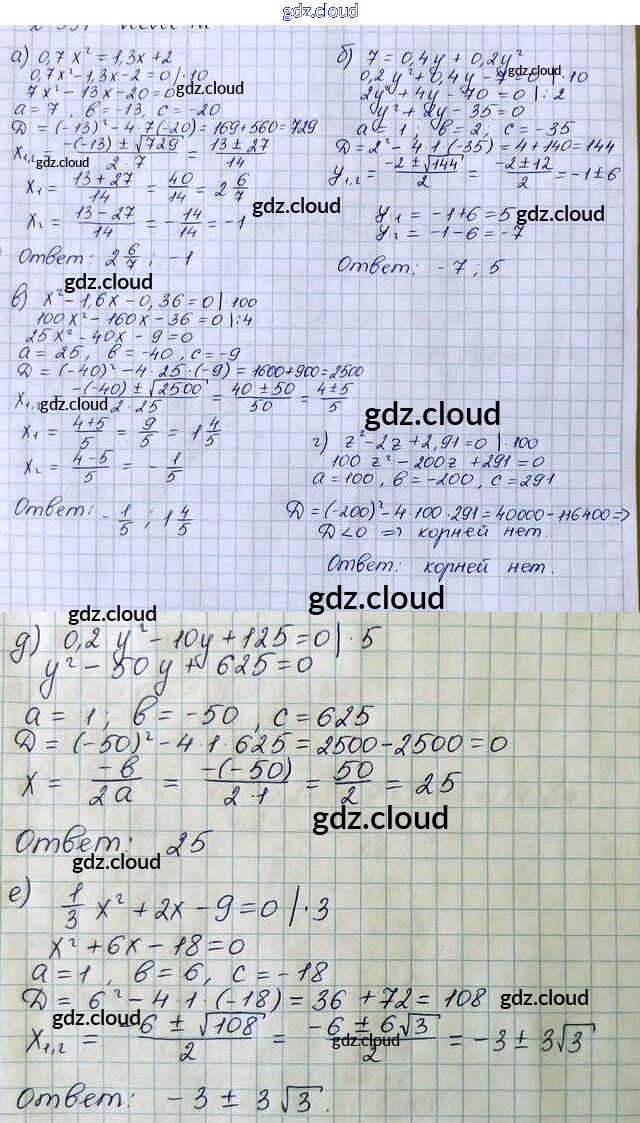 gdz.cloud
а) 0,7x² = 1,3x + 2
0,7x² - 1,3x - 2 = 0 | · 10
7x² - 13x - 20 = 0
a = 7 , в = -13, c = -20
D = (-13)² - 4·7·(-20) = 169 + 560 = 729
x₁,₂ = (-(-13) ± √729)/(2·7) = (13 ± 27)/14
gdz.cloud
x₁ = (13 + 27)/14 = 40/14 = 2 6/7
x₂ = (13 - 27)/14 = -14/14 = -1
gdz.cloud
Ответ: 2 6/7 ; -1
gdz.cloud
б) 7 = 0,4y + 0,2y²
gdz.cloud
0,2y² + 0,4y - 7 = 0 | · 10
2y² + 4y - 70 = 0 | : 2
y² + 2y - 35 = 0
a = 1 ; в = 2; c = -35
D = 2² - 4·1·(-35) = 4 + 140 = 144
y₁,₂ = (-2 ± √144)/2 = (-2 ± 12)/2 = -1 ± 6
gdz.cloud
y₁ = -1 + 6 = 5
y₂ = -1 - 6 = -7
Ответ: -7 ; 5
в) x² - 1,6x - 0,36 = 0 | · 100
100x² - 160x - 36 = 0 | : 4
25x² - 40x - 9 = 0
a = 25, в = -40, c = -9
D = (-40)² - 4·25·(-9) = 1600 + 900 = 2500
x₁,₂ = (-(-40) ± √2500)/(2·25) = (40 ± 50)/50 = (4 ± 5)/5
gdz.cloud
x₁ = (4+5)/5 = 9/5 = 1 4/5
x₂ = (4-5)/5 = -1/5
Ответ: -1/5 ; 1 4/5
gdz.cloud
г) z² - 2z + 2,91 = 0 | · 100
100z² - 200z + 291 = 0
a = 100, в = -200, c = 291
gdz.cloud
D = (-200)² - 4·100·291 = 40000 - 116400 ⇒
D < 0 ⇒ корней нет.
Ответ: корней нет.
gdz.cloud
gdz.cloud
д) 0,2y² - 10y + 125 = 0 | · 5
y² - 50y + 625 = 0
a = 1; в = -50 , c = 625
D = (-50)² - 4·1·625 = 2500 - 2500 = 0
x = -в/2a = -(-50)/(2·1) = 50/2 = 25
gdz.cloud
Ответ: 25
gdz.cloud
е) 1/3 x² + 2x - 9 = 0 | · 3
x² + 6x - 18 = 0
a = 1 , в = 6, c = -18
D = 6² - 4·1·(-18) = 36 + 72 = 108
gdz.cloud
x₁,₂ = (-6 ± √108)/2 = (-6 ± 6√3)/2 = -3 ± 3√3
gdz.cloud
gdz.cloud
Ответ: -3 ± 3√3.